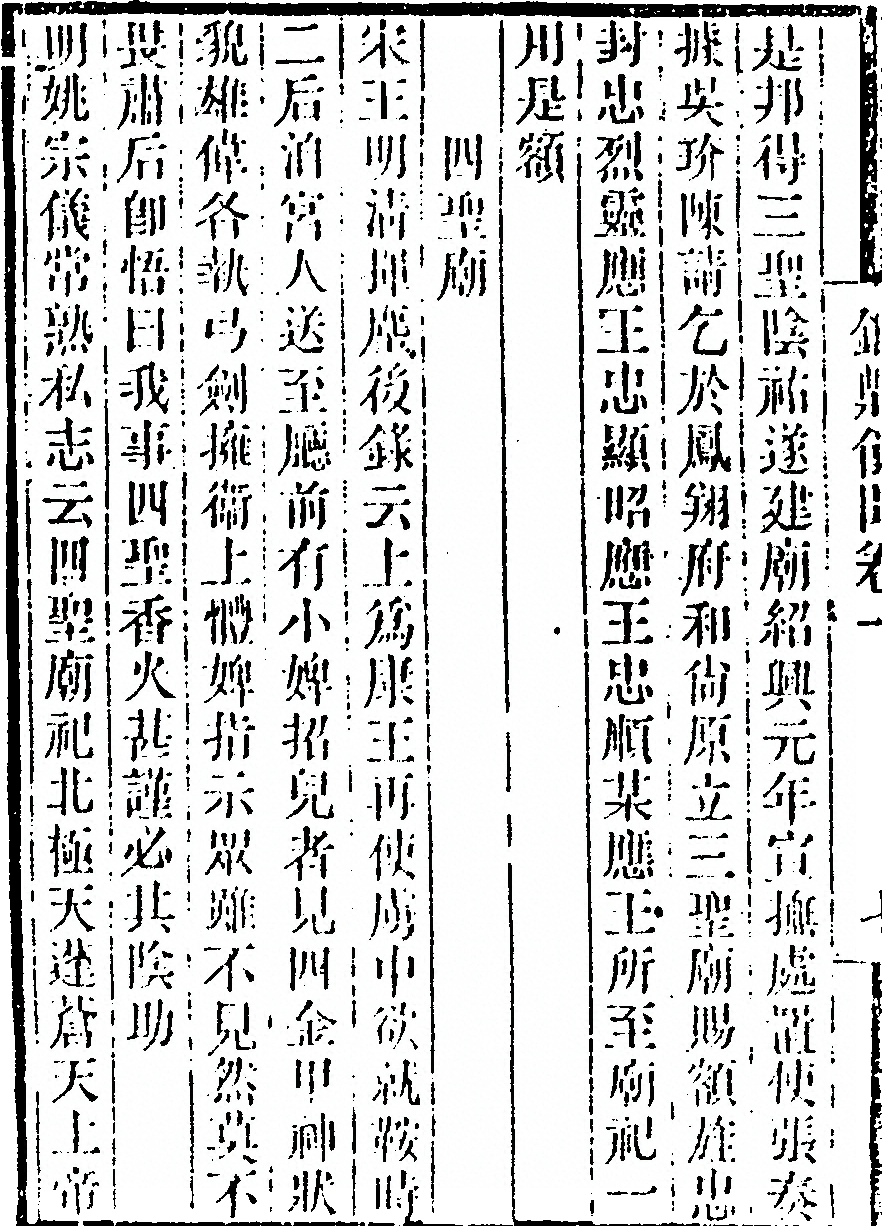 是邦得三聖陰祐遂建廟紹興元年宣撫處置使張奏
據吳玠陳請乞於鳳翔府和尙原立三聖廟賜額雄忠
封忠烈靈應王忠顯昭應王忠順某應王所至廟祀一
用是額
四聖廟
宋王明清揮麈後錄云上爲康王再使虜中欲就鞍時
二后洎宮人送至廳前有小婢招兒者見四金甲神狀
貌雄偉各執弓劍擁衞上體婢指示眾雖不見然莫不
畏肅后卽悟曰我事四聖香火甚謹必其陰助
明姚宗儀常熟私志云四聖廟祀北極天蓬蒼天上帝
卷一